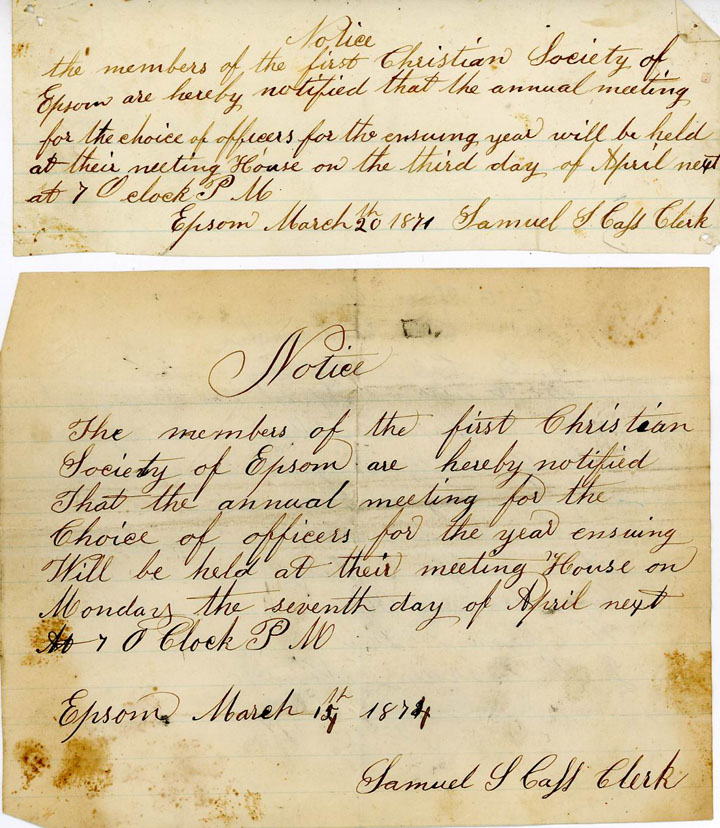 Notice
the members of the first Christian Society of
Epsom are hereby notified that the annual meeting
for the choice of officers for the ensuing year will be held
at their neeting House on the third day of April next
at 7 O clock P M
Epsom March 20th 1871 Samuel S Cass Clerk
Notice
The members of the first Christian
Society of Epsom are hereby notified
That the annual meeting for the
Choice of officers for the year ensuing
Will be held at their meeting House on
Monday the seventh day of April next
At 7 O Clock P M
Epsom March th 1874
Samuel S Cass Clerk